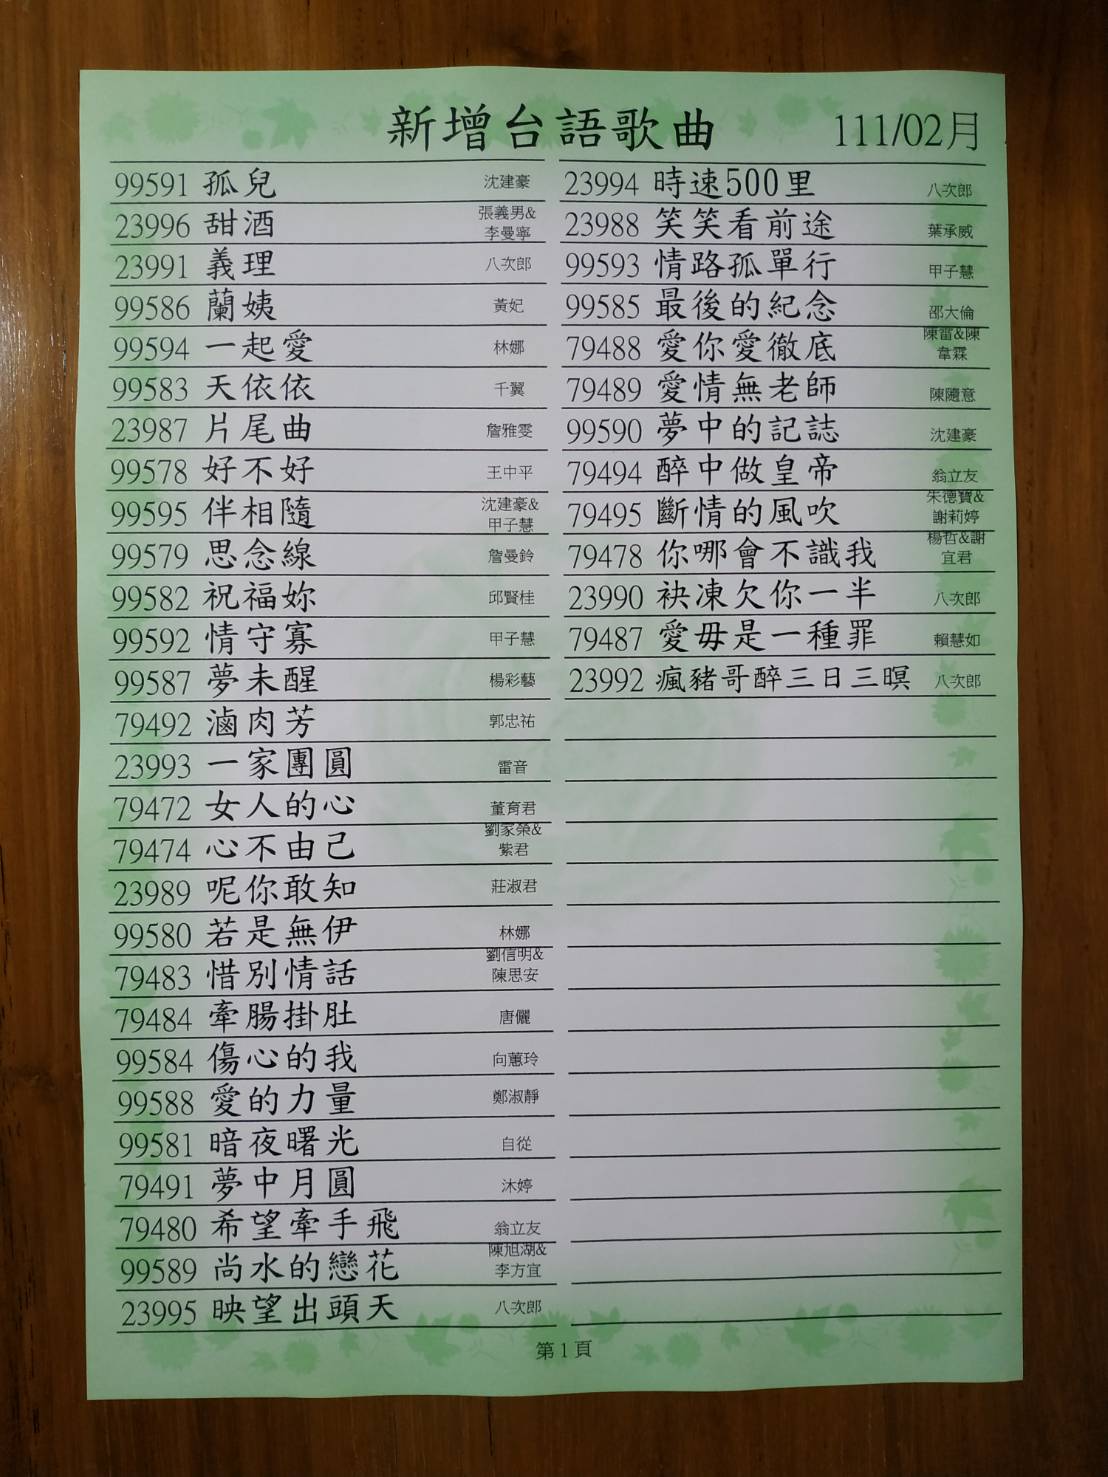 新增台語歌曲 111/02月
99591 孤兒 沈建豪
23996 甜酒 張義男&李曼寧
23991 義理 八次郎
99586 蘭姨 黃妃
99594 一起愛 林娜
99583 天依依 千翼
23987 片尾曲 詹雅雯
99578 好不好 王中平
99595 伴相隨 沈建豪&甲子慧
99579 思念線 詹曼鈴
99582 祝福妳 邱賢桂
99592 情守寡 甲子慧
99587 夢未醒 楊彩藝
79492 滷肉芳 郭忠祐
23993 一家團圓 雷音
79472 女人的心 董育君
79474 心不由己 劉家榮&紫君
23989 呢你敢知 莊淑君
99580 若是無伊 林娜
79483 惜別情話 劉信明&陳思安
79484 牽腸掛肚 唐儷
99584 傷心的我 向蕙玲
99588 愛的力量 鄭淑靜
99581 暗夜曙光 自從
79491 夢中月圓 沐婷
79480 希望牽手飛 翁立友
99589 尚水的戀花 陳旭湖&李方宜
23995 映望出頭天 八次郎
23994 時速500里 八次郎
23988 笑笑看前途 葉承威
99593 情路孤單行 甲子慧
99585 最後的紀念 邵大倫
79488 愛你愛徹底 陳雷&陳韋霖
79489 愛情無老師 陳隨意
99590 夢中的記誌 沈建豪
79494 醉中做皇帝 翁立友
79495 斷情的風吹 朱德寶&謝莉婷
79478 你哪會不識我 楊哲&謝宜君
23990 袂凍欠你一半 八次郎
79487 愛毋是一種罪 賴慧如
23992 瘋豬哥醉三日三暝 八次郎
第1頁